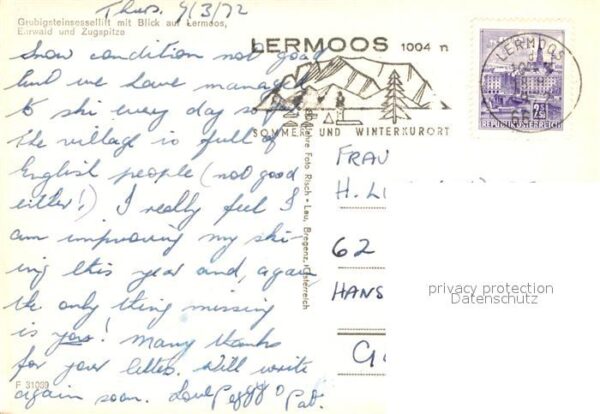 Thurs. 9/3/72
Grubigsteinsessellift mit Blick auf Lermoos,
Ehrwald und Zugspitze
Snow condition not good
but we have managed
to ski every day so far
the village is full of
English people (not good
either!) I really feel I
am improving my ski-
ing this year and, again,
the only thing missing
is you! Many thanks
for your letter. Will write
again soon. Love Peggy & Pat.
F 31069
Foto Risch-Lau, Bregenz, Österreich
LERMOOS 1004 m
SOMMER UND WINTERKURORT
LERMOOS
REPUBLIK ÖSTERREICH
FRAU
H. L
62
HANS
G
privacy protection
Datenschutz